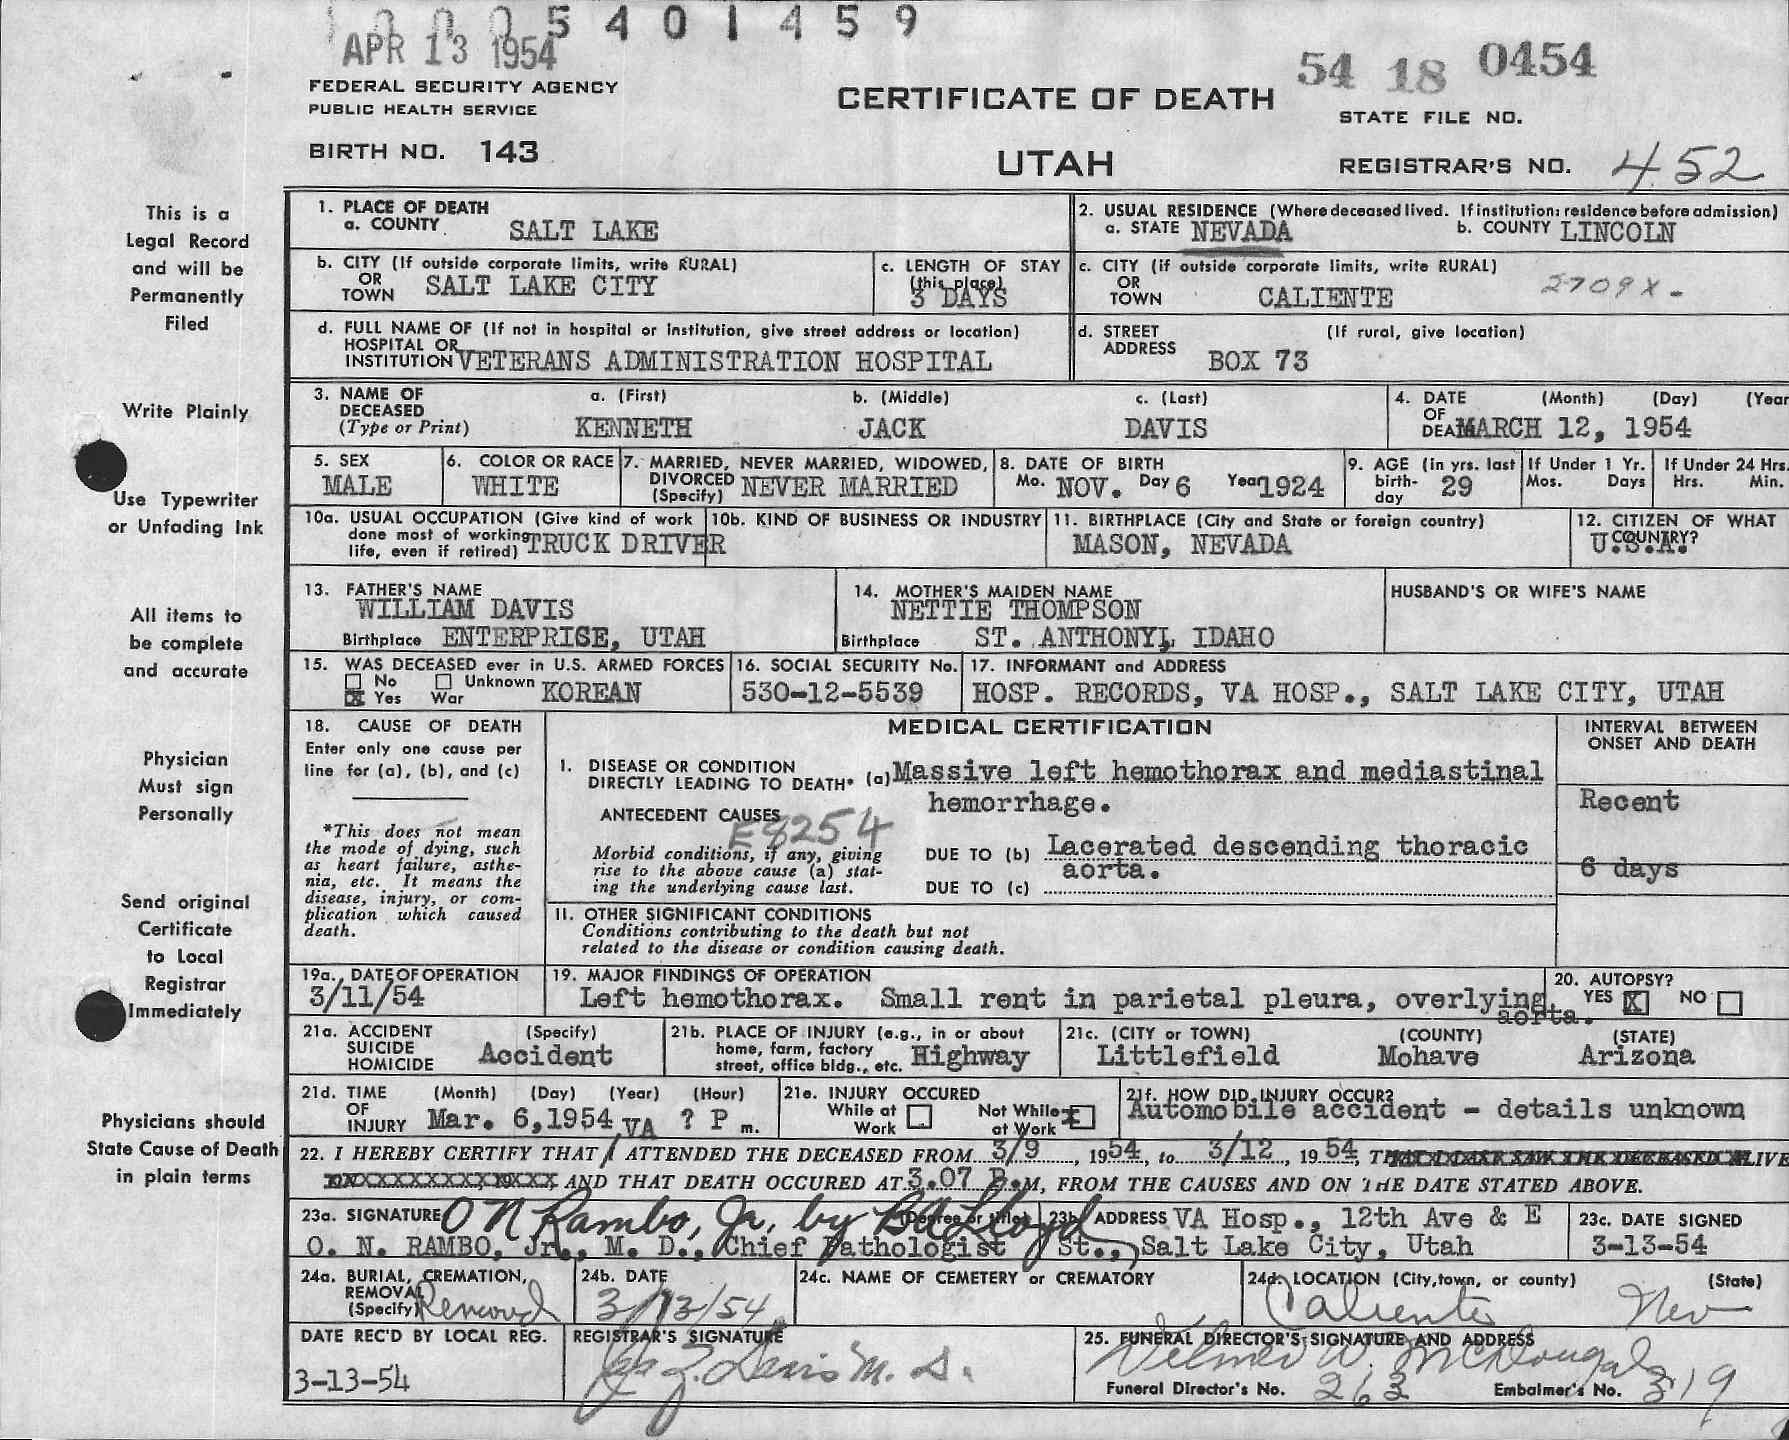 0005401459
APR 13 1954
54 18 0454
FEDERAL SECURITY AGENCY
PUBLIC HEALTH SERVICE
CERTIFICATE OF DEATH
STATE FILE NO.
BIRTH NO. 143
UTAH
REGISTRAR'S NO. 452
This is a
Legal Record
and will be
Permanently
Filed
Write Plainly
Use Typewriter
or Unfading Ink
All items to
be complete
and accurate
Physician
Must sign
Personally
Send original
Certificate
to Local
Registrar
Immediately
Physicians should
State Cause of Death
in plain terms
1. PLACE OF DEATH
a. COUNTY SALT LAKE
2. USUAL RESIDENCE (Where deceased lived. If institution: residence before admission)
a. STATE NEVADA b. COUNTY LINCOLN
b. CITY (If outside corporate limits, write RURAL)
OR
TOWN SALT LAKE CITY
c. LENGTH OF STAY
(this place)
3 DAYS
c. CITY (if outside corporate limits, write RURAL)
OR
TOWN CALIENTE
2709X-
d. FULL NAME OF (If not in hospital or institution, give street address or location)
HOSPITAL OR
INSTITUTION VETERANS ADMINISTRATION HOSPITAL
d. STREET (If rural, give location)
ADDRESS BOX 73
3. NAME OF a. (First) b. (Middle) c. (Last)
DECEASED
(Type or Print) KENNETH JACK DAVIS
4. DATE (Month) (Day) (Year
OF
DEA MARCH 12, 1954
5. SEX
MALE
6. COLOR OR RACE
WHITE
7. MARRIED, NEVER MARRIED, WIDOWED,
DIVORCED
(Specify) NEVER MARRIED
8. DATE OF BIRTH
Mo. NOV. Day 6 Year 1924
9. AGE (In yrs. last
birth-
day 29
If Under 1 Yr.
Mos. Days
If Under 24 Hrs.
Hrs. Min.
10a. USUAL OCCUPATION (Give kind of work
done most of working
life, even if retired) TRUCK DRIVER
10b. KIND OF BUSINESS OR INDUSTRY
11. BIRTHPLACE (City and State or foreign country)
MASON, NEVADA
12. CITIZEN OF WHAT
COUNTRY?
U.S.A.
13. FATHER'S NAME
WILLIAM DAVIS
Birthplace ENTERPRISE, UTAH
14. MOTHER'S MAIDEN NAME
NETTIE THOMPSON
Birthplace ST. ANTHONY, IDAHO
HUSBAND'S OR WIFE'S NAME
15. WAS DECEASED ever in U.S. ARMED FORCES
No Unknown
X Yes War KOREAN
16. SOCIAL SECURITY No.
530-12-5539
17. INFORMANT and ADDRESS
HOSP. RECORDS, VA HOSP., SALT LAKE CITY, UTAH
18. CAUSE OF DEATH
Enter only one cause per
line for (a), (b), and (c)
*This does not mean
the mode of dying, such
as heart failure, asthe-
nia, etc. It means the
disease, injury, or com-
plication which caused
death.
MEDICAL CERTIFICATION
INTERVAL BETWEEN
ONSET AND DEATH
I. DISEASE OR CONDITION
DIRECTLY LEADING TO DEATH* (a) Massive left hemothorax and mediastinal
hemorrhage.
Recent
ANTECEDENT CAUSES
E8254
Morbid conditions, if any, giving
rise to the above cause (a) stat-
ing the underlying cause last.
DUE TO (b) Lacerated descending thoracic
aorta.
6 days
DUE TO (c)
II. OTHER SIGNIFICANT CONDITIONS
Conditions contributing to the death but not
related to the disease or condition causing death.
19a. DATE OF OPERATION
3/11/54
19. MAJOR FINDINGS OF OPERATION
Left hemothorax. Small rent in parietal pleura, overlying
aorta.
20. AUTOPSY?
YES X NO
21a. ACCIDENT (Specify)
SUICIDE
HOMICIDE Accident
21b. PLACE OF INJURY (e.g., in or about
home, farm, factory
street, office bldg., etc. Highway
21c. (CITY or TOWN) (COUNTY) (STATE)
Littlefield Mohave Arizona
21d. TIME (Month) (Day) (Year) (Hour)
OF
INJURY Mar. 6,1954 VA ? P m.
21e. INJURY OCCURED
While at Work Not While at Work X
21f. HOW DID INJURY OCCUR?
Automobile accident - details unknown
22. I HEREBY CERTIFY THAT I ATTENDED THE DECEASED FROM 3/9, 1954, to 3/12, 1954, THAT I LAST SAW THE DECEASED ALIVE
XXXXXXXXXXXX, AND THAT DEATH OCCURED AT 3.07 P.M, FROM THE CAUSES AND ON THE DATE STATED ABOVE.
23a. SIGNATURE O N Rambo, Jr. by BA Lloyd (Degree or title)
O. N. RAMBO, Jr., M. D., Chief Pathologist
23b. ADDRESS VA Hosp., 12th Ave & E
St., Salt Lake City, Utah
23c. DATE SIGNED
3-13-54
24a. BURIAL, CREMATION,
REMOVAL
(Specify) Removal
24b. DATE
3/13/54
24c. NAME OF CEMETERY or CREMATORY
24d. LOCATION (City, town, or county) (State)
Caliente Nev
DATE REC'D BY LOCAL REG.
3-13-54
REGISTRAR'S SIGNATURE
Davis M. D.
25. FUNERAL DIRECTOR'S SIGNATURE AND ADDRESS
Wilmer W. McDougal
Funeral Director's No. 262 Embalmer's No. 319